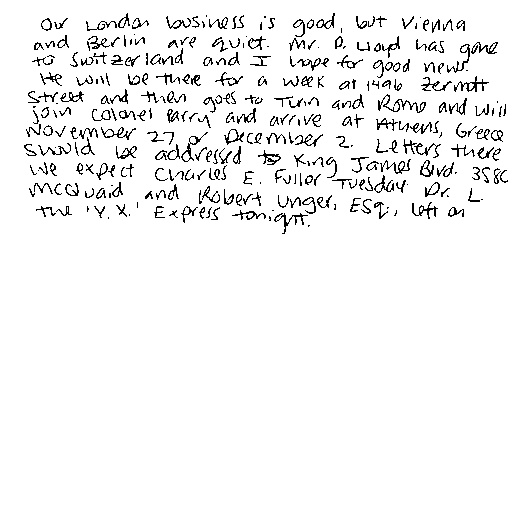 Our London business is good, but Vienna
and Berlin are quiet. Mr. D. Lloyd has gone
to Switzerland and I hope for good news.
He will be there for a week at 1496 Zermott
Street and then goes to Turin and Rome and will
join Colonel Parry and arrive at Athens, Greece
November 27 or December 2. Letters there
should be addressed to King James Blvd. 3580
We expect Charles E. Fuller Tuesday. Dr. L.
McQuaid and Robert Unger, ESq., left on
the 'Y.X.' Express tonight.